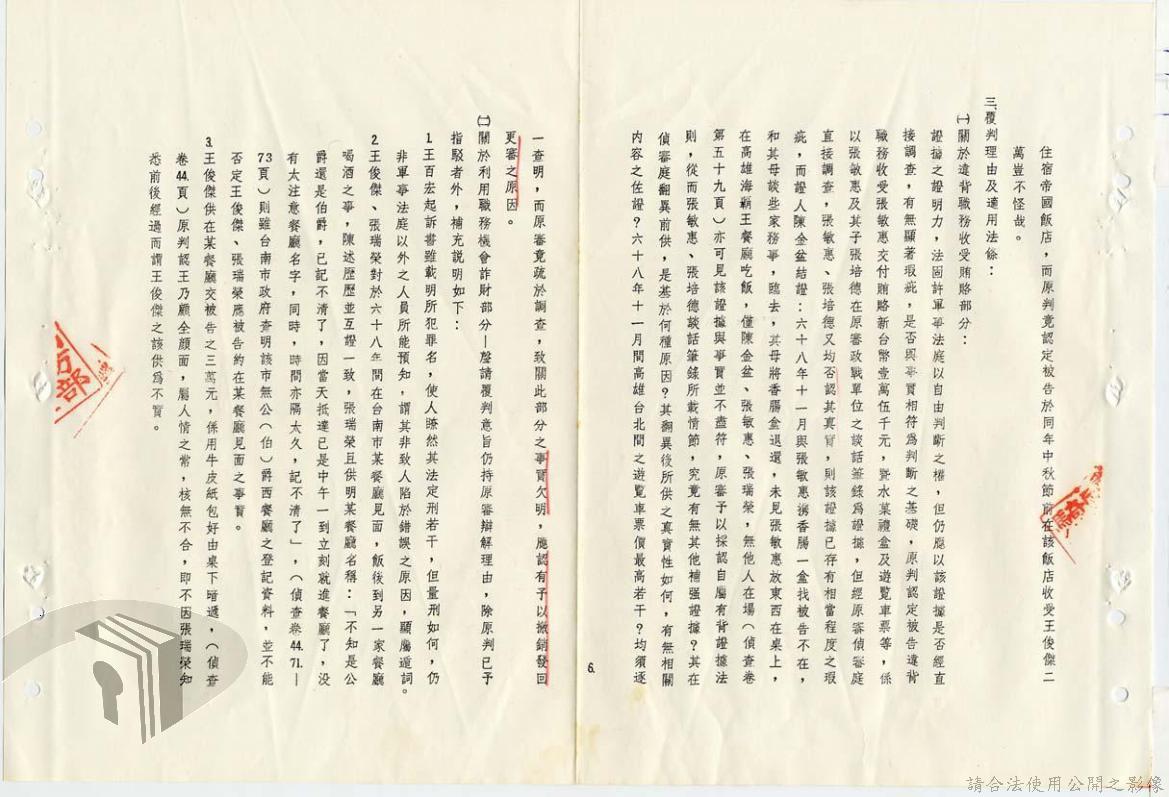 住宿帝國飯店，而原判竟認定被告於同年中秋節前在該飯店收受王俊傑二
萬豈不怪哉。
三、覆判理由及適用法條：
㈠關於違背職務收受賄賂部分：
證據之證明力，法固許軍事法庭以自由判斷之權，但仍應以該證據是否經直
接調查，有無顯著瑕疵，是否與事實相符為判斷之基礎，原判認定被告違背
職務收受張敏惠交付賄賂新台幣壹萬伍仟元，暨水菓禮盒及遊覽車票等，係
以張敏惠及其子張培德在原審政戰單位之談話筆錄為證據，但經原審偵審庭
直接調查，張敏惠、張培德又均否認其真實，則該證據已存有相當程度之瑕
疵，而證人陳金盆結證：六十八年十一月與張敏惠携香腸一盒找被告不在，
和其母談些家務事，臨去，其母將香腸盒退還，未見張敏惠放東西在桌上，
在高雄海霸王餐廳吃飯，僅陳金盆、張敏惠、張瑞榮，無他人在場（偵查卷
第五十九頁）亦可見該證據與事實並不盡符，原審予以採認自屬有背證據法
則，從而張敏惠、張培德談話筆錄所載情節，究竟有無其他補强證據？其在
偵審庭翻異前供，是基於何種原因？其翻異後所供之真實性如何，有無相關
內容之佐證？六十八年十一月間高雄台北間之遊覽車票價最高若干？均須逐
6.
一查明，而原審竟疏於調查，致關此部分之事實欠明，應認有予以撤銷發回
更審之原因。
㈡關於利用職務機會詐財部分—聲請覆判意旨仍持原審辯解理由，除原判已予
指駁者外，補充說明如下：
1.王百宏起訴書雖載明所犯罪名，使人瞭然其法定刑若干，但量刑如何，仍
非軍事法庭以外之人員所能預知，謂其非致人陷於錯誤之原因，顯屬遁詞。
2.王俊傑、張瑞榮對於六十八年間在台南市某餐廳見面，飯後到另一家餐廳
喝酒之事，陳述歷歷並互證一致，張瑞榮且供明某餐廳名稱：「不知是公
爵還是伯爵，已記不清了，因當天抵達已是中午一到立刻就進餐廳了，没
有太注意餐廳名字，同時，時間亦隔太久，記不清了」，（偵查卷44.71.—
73頁）則雖台南市政府查明該市無公（伯）爵西餐廳之登記資料，並不能
否定王俊傑、張瑞榮應被告約在某餐廳見面之事實。
3.王俊傑供在某餐廳交被告之三萬元，係用牛皮紙包好由桌下暗遞，（偵查
卷44.頁）原判認王乃顧全顏面，屬人情之常，核無不合，即不因張瑞榮知
悉前後經過而謂王俊傑之該供為不實。
請合法使用公開之影像